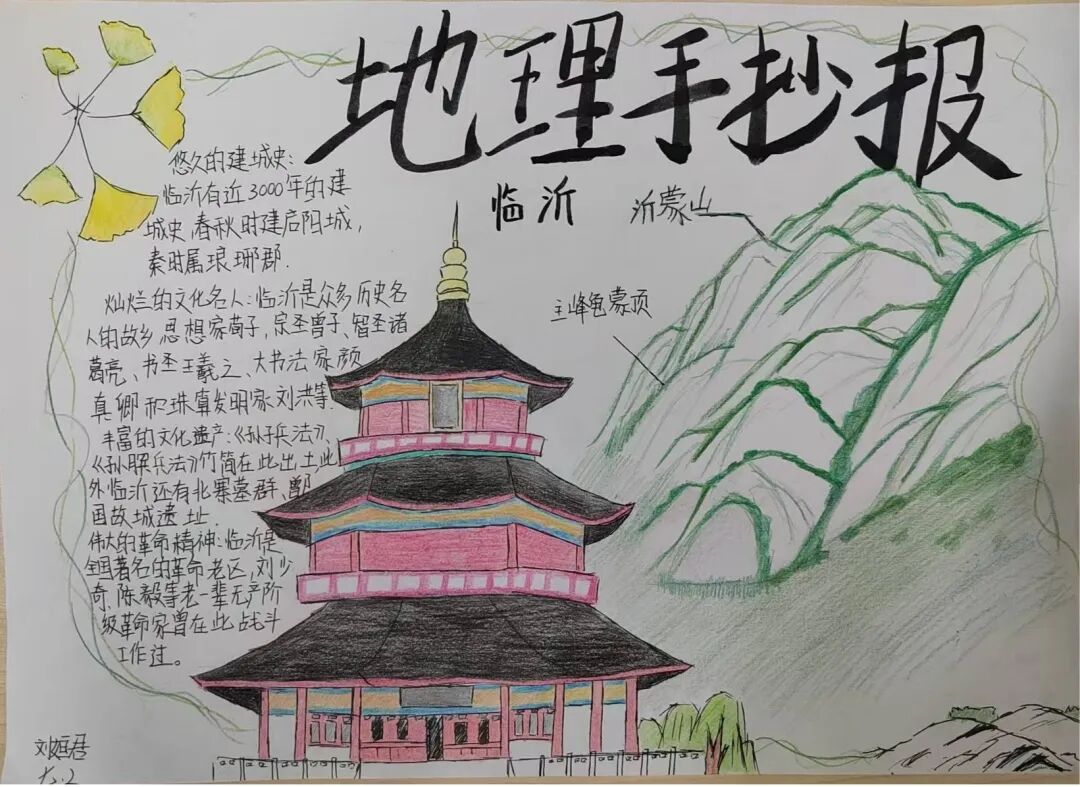 地理手抄报
临沂
沂蒙山
主峰龟蒙顶
悠久的建城史：
临沂有近3000年的建
城史，春秋时建启阳城，
秦时属琅琊郡.
灿烂的文化名人：临沂是众多历史名
人的故乡，思想家荀子、宗圣曾子、智圣诸
葛亮、书圣王羲之、大书法家颜
真卿和珠算发明家刘洪等.
丰富的文化遗产：《孙子兵法》、
《孙膑兵法》竹简在此出土，此
外临沂还有北寨墓群、鄫
国故城遗址.
伟大的革命精神：临沂是
全国著名的革命老区，刘少
奇、陈毅等老一辈无产阶
级革命家曾在此战斗
工作过。